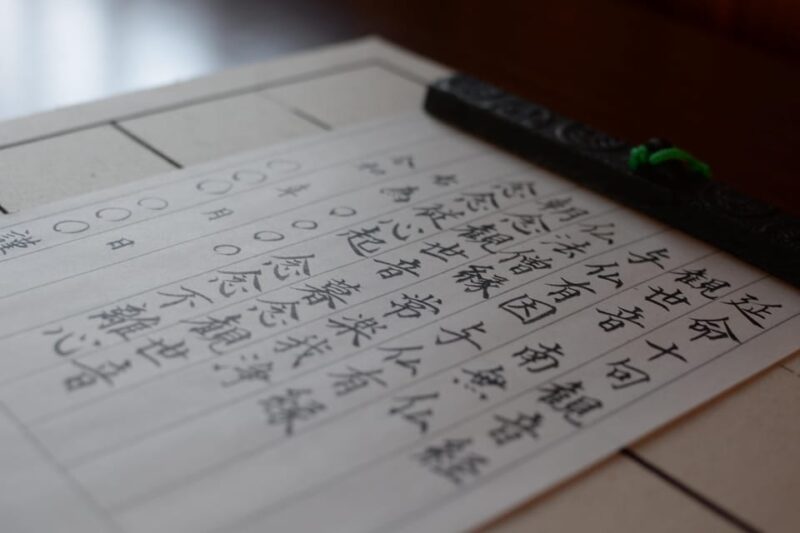 延命十句観音経
観世音南無仏
与仏有因与仏有縁
仏法僧縁常楽我浄
朝念観世音暮念観世音
念念従心起念念不離心
右為〇〇〇〇
令和 年 月 日
〇〇〇〇〇〇謹